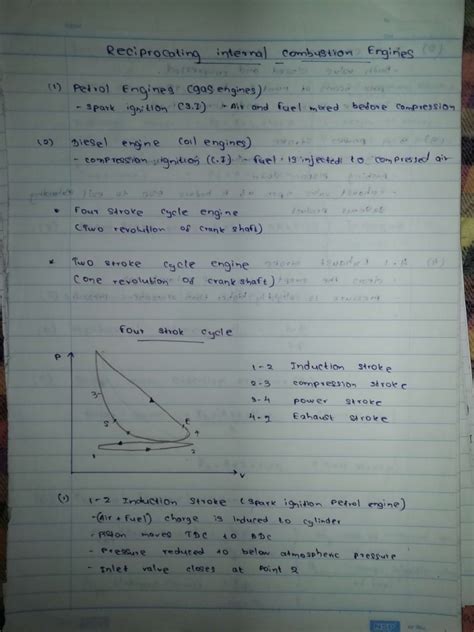 Reciprocating internal combustion Engines
(1) Petrol Engines (gas engines)
- spark ignition (S.I) - Air and fuel mixed before compression
(2) Diesel engine (oil engines)
- compression ignition (C.I) - fuel is injected to compressed air
• Four stroke cycle engine
(Two revolution of crank shaft)
• Two stroke cycle engine
(one revolution of crank shaft)
Four strok cycle
P
3
S
E
4
1
2
V
1-2 Induction stroke
2-3 compression stroke
3-4 power stroke
4-2 Exhaust stroke
(1) 1-2 Induction Stroke (spark ignition petrol engine)
- (Air + Fuel) charge is induced to cylinder
- piston moves TDC to BDC
- Pressure reduced to below atmospheric pressure
- Inlet valve closes at point 2